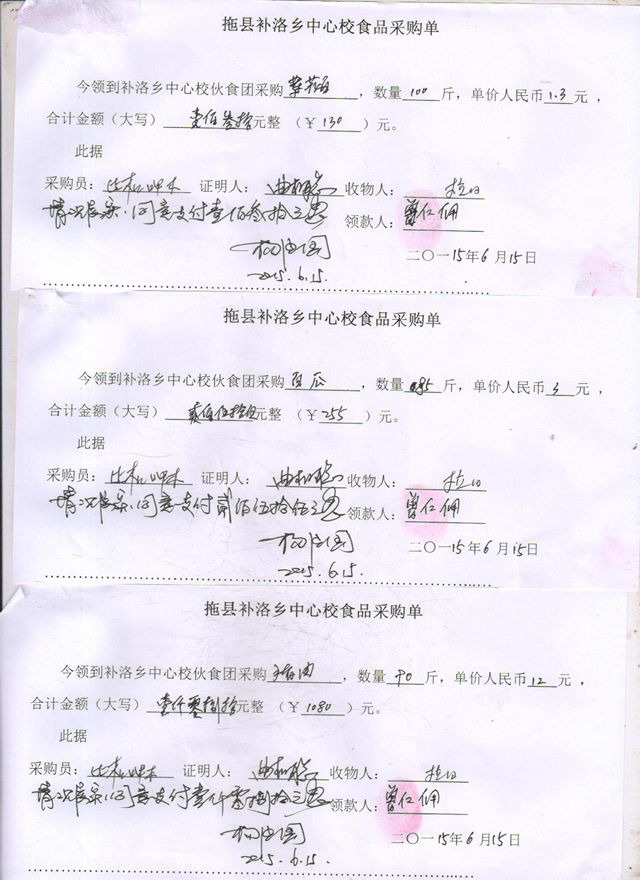 拖县补洛乡中心校食品采购单
今领到补洛乡中心校伙食团采购，数量100斤，单价人民币1.3元，
合计金额（大写）壹佰叁拾元整（￥130）元。
此据
采购员： 证明人： 收物人：拉日
情况属实，同意支付壹佰叁拾元 领款人：曾仁佣
二〇一15年6月15日
2015.6.15.
拖县补洛乡中心校食品采购单
今领到补洛乡中心校伙食团采购瓜，数量85斤，单价人民币3元，
合计金额（大写）贰佰伍拾伍元整（￥255）元。
此据
采购员： 证明人： 收物人：拉日
情况属实，同意支付贰佰伍拾伍元 领款人：曾仁佣
二〇一15年6月15日
2015.6.15.
拖县补洛乡中心校食品采购单
今领到补洛乡中心校伙食团采购猪肉，数量90斤，单价人民币12元，
合计金额（大写）壹仟零捌拾元整（￥1080）元。
此据
采购员： 证明人： 收物人：拉日
情况属实，同意支付壹仟零捌拾元 领款人：曾仁佣
二〇一15年6月15日
2015.6.15.